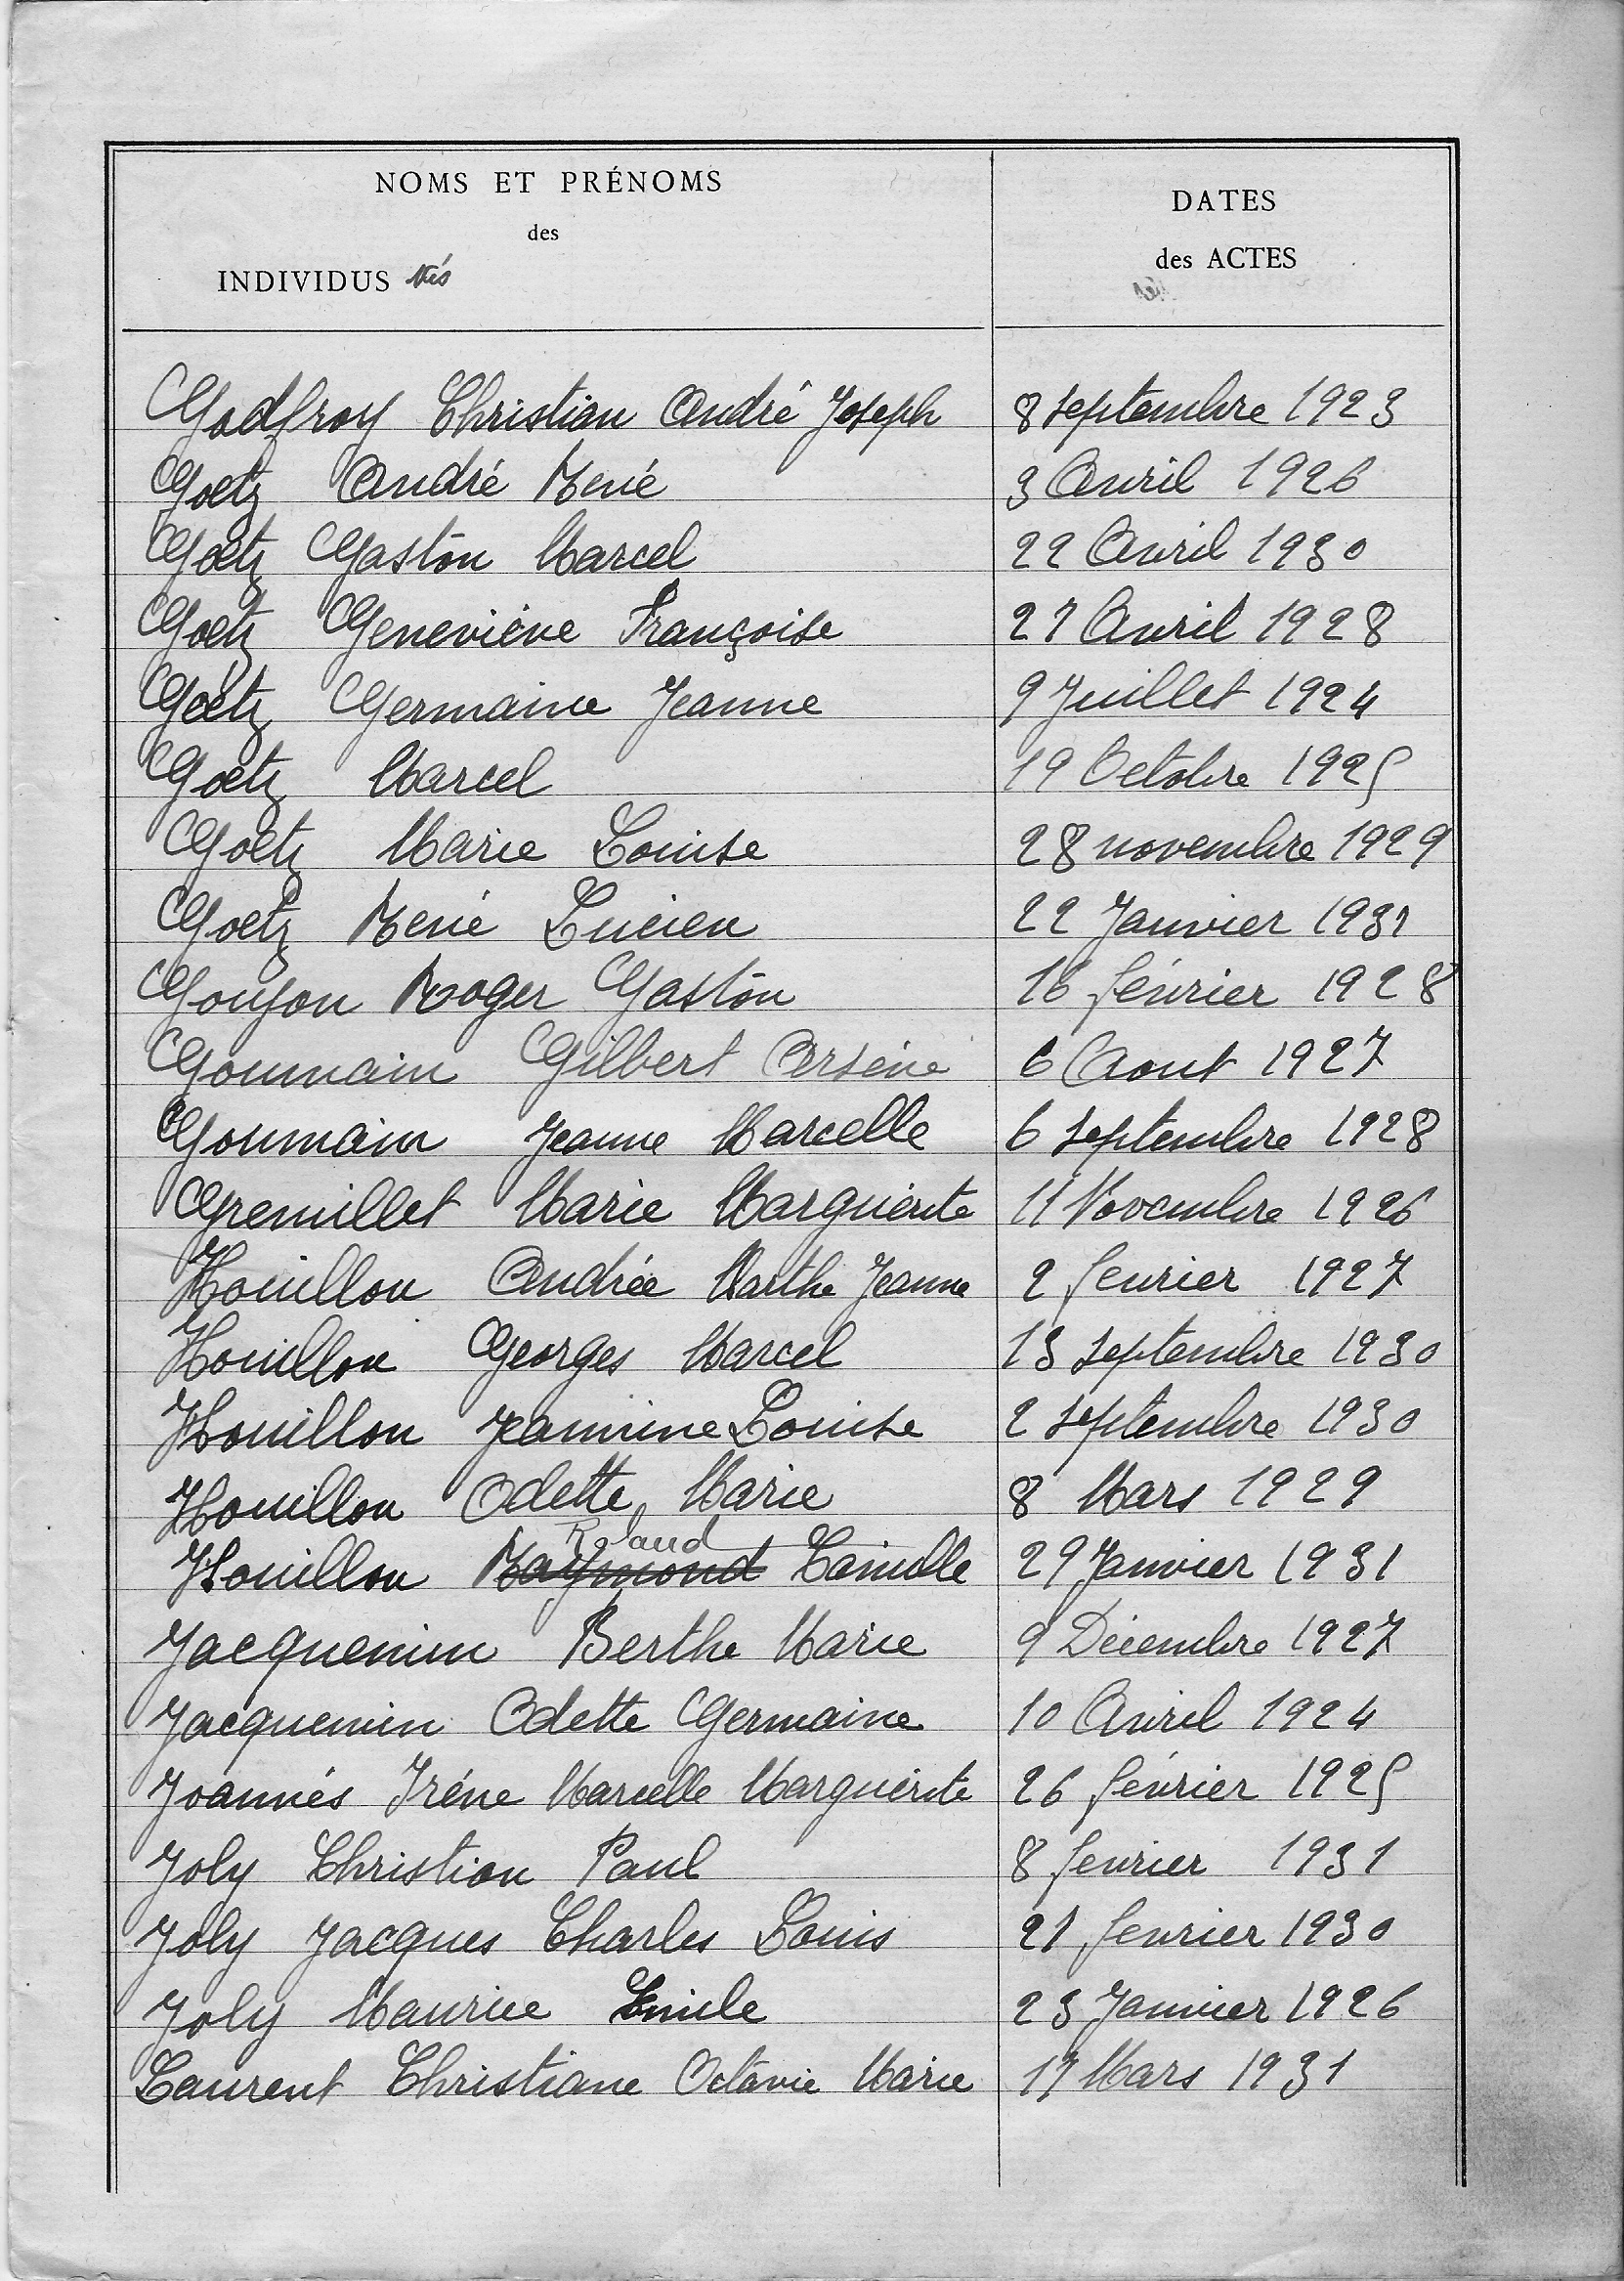 NOMS ET PRÉNOMS
des
INDIVIDUS Nés
DATES
des ACTES
Godfroy Christian André Joseph 8 septembre 1923
Goetz André René 3 Avril 1926
Goetz Gaston Marcel 22 Avril 1930
Goetz Geneviève Françoise 21 Avril 1928
Goetz Germaine Jeanne 9 Juillet 1924
Goetz Marcel 19 Octobre 1925
Goetz Marie Louise 28 novembre 1929
Goetz René Lucien 22 Janvier 1931
Goujon Roger Gaston 16 février 1928
Goumain Gilbert Arsène 6 Aout 1927
Goumain Jeanne Marcelle 6 septembre 1928
Gremillet Marie Marguerite 11 Novembre 1926
Houillon Andrée Marthe Jeanne 2 fevrier 1927
Houillon Georges Marcel 13 septembre 1930
Houillon Jeannine Louise 2 septembre 1930
Houillon Odette Marie 8 Mars 1929
Roland
Houillon Raymond Camille 29 Janvier 1931
Jacquemin Berthe Marie 9 Décembre 1927
Jacquemin Odette Germaine 10 Avril 1924
Joannès Irène Marcelle Marguerite 26 février 1925
Joly Christian Paul 8 fevrier 1931
Joly Jacques Charles Louis 21 fevrier 1930
Joly Maurice Emile 23 Janvier 1926
Laurent Christiane Octavie Marie 17 Mars 1931